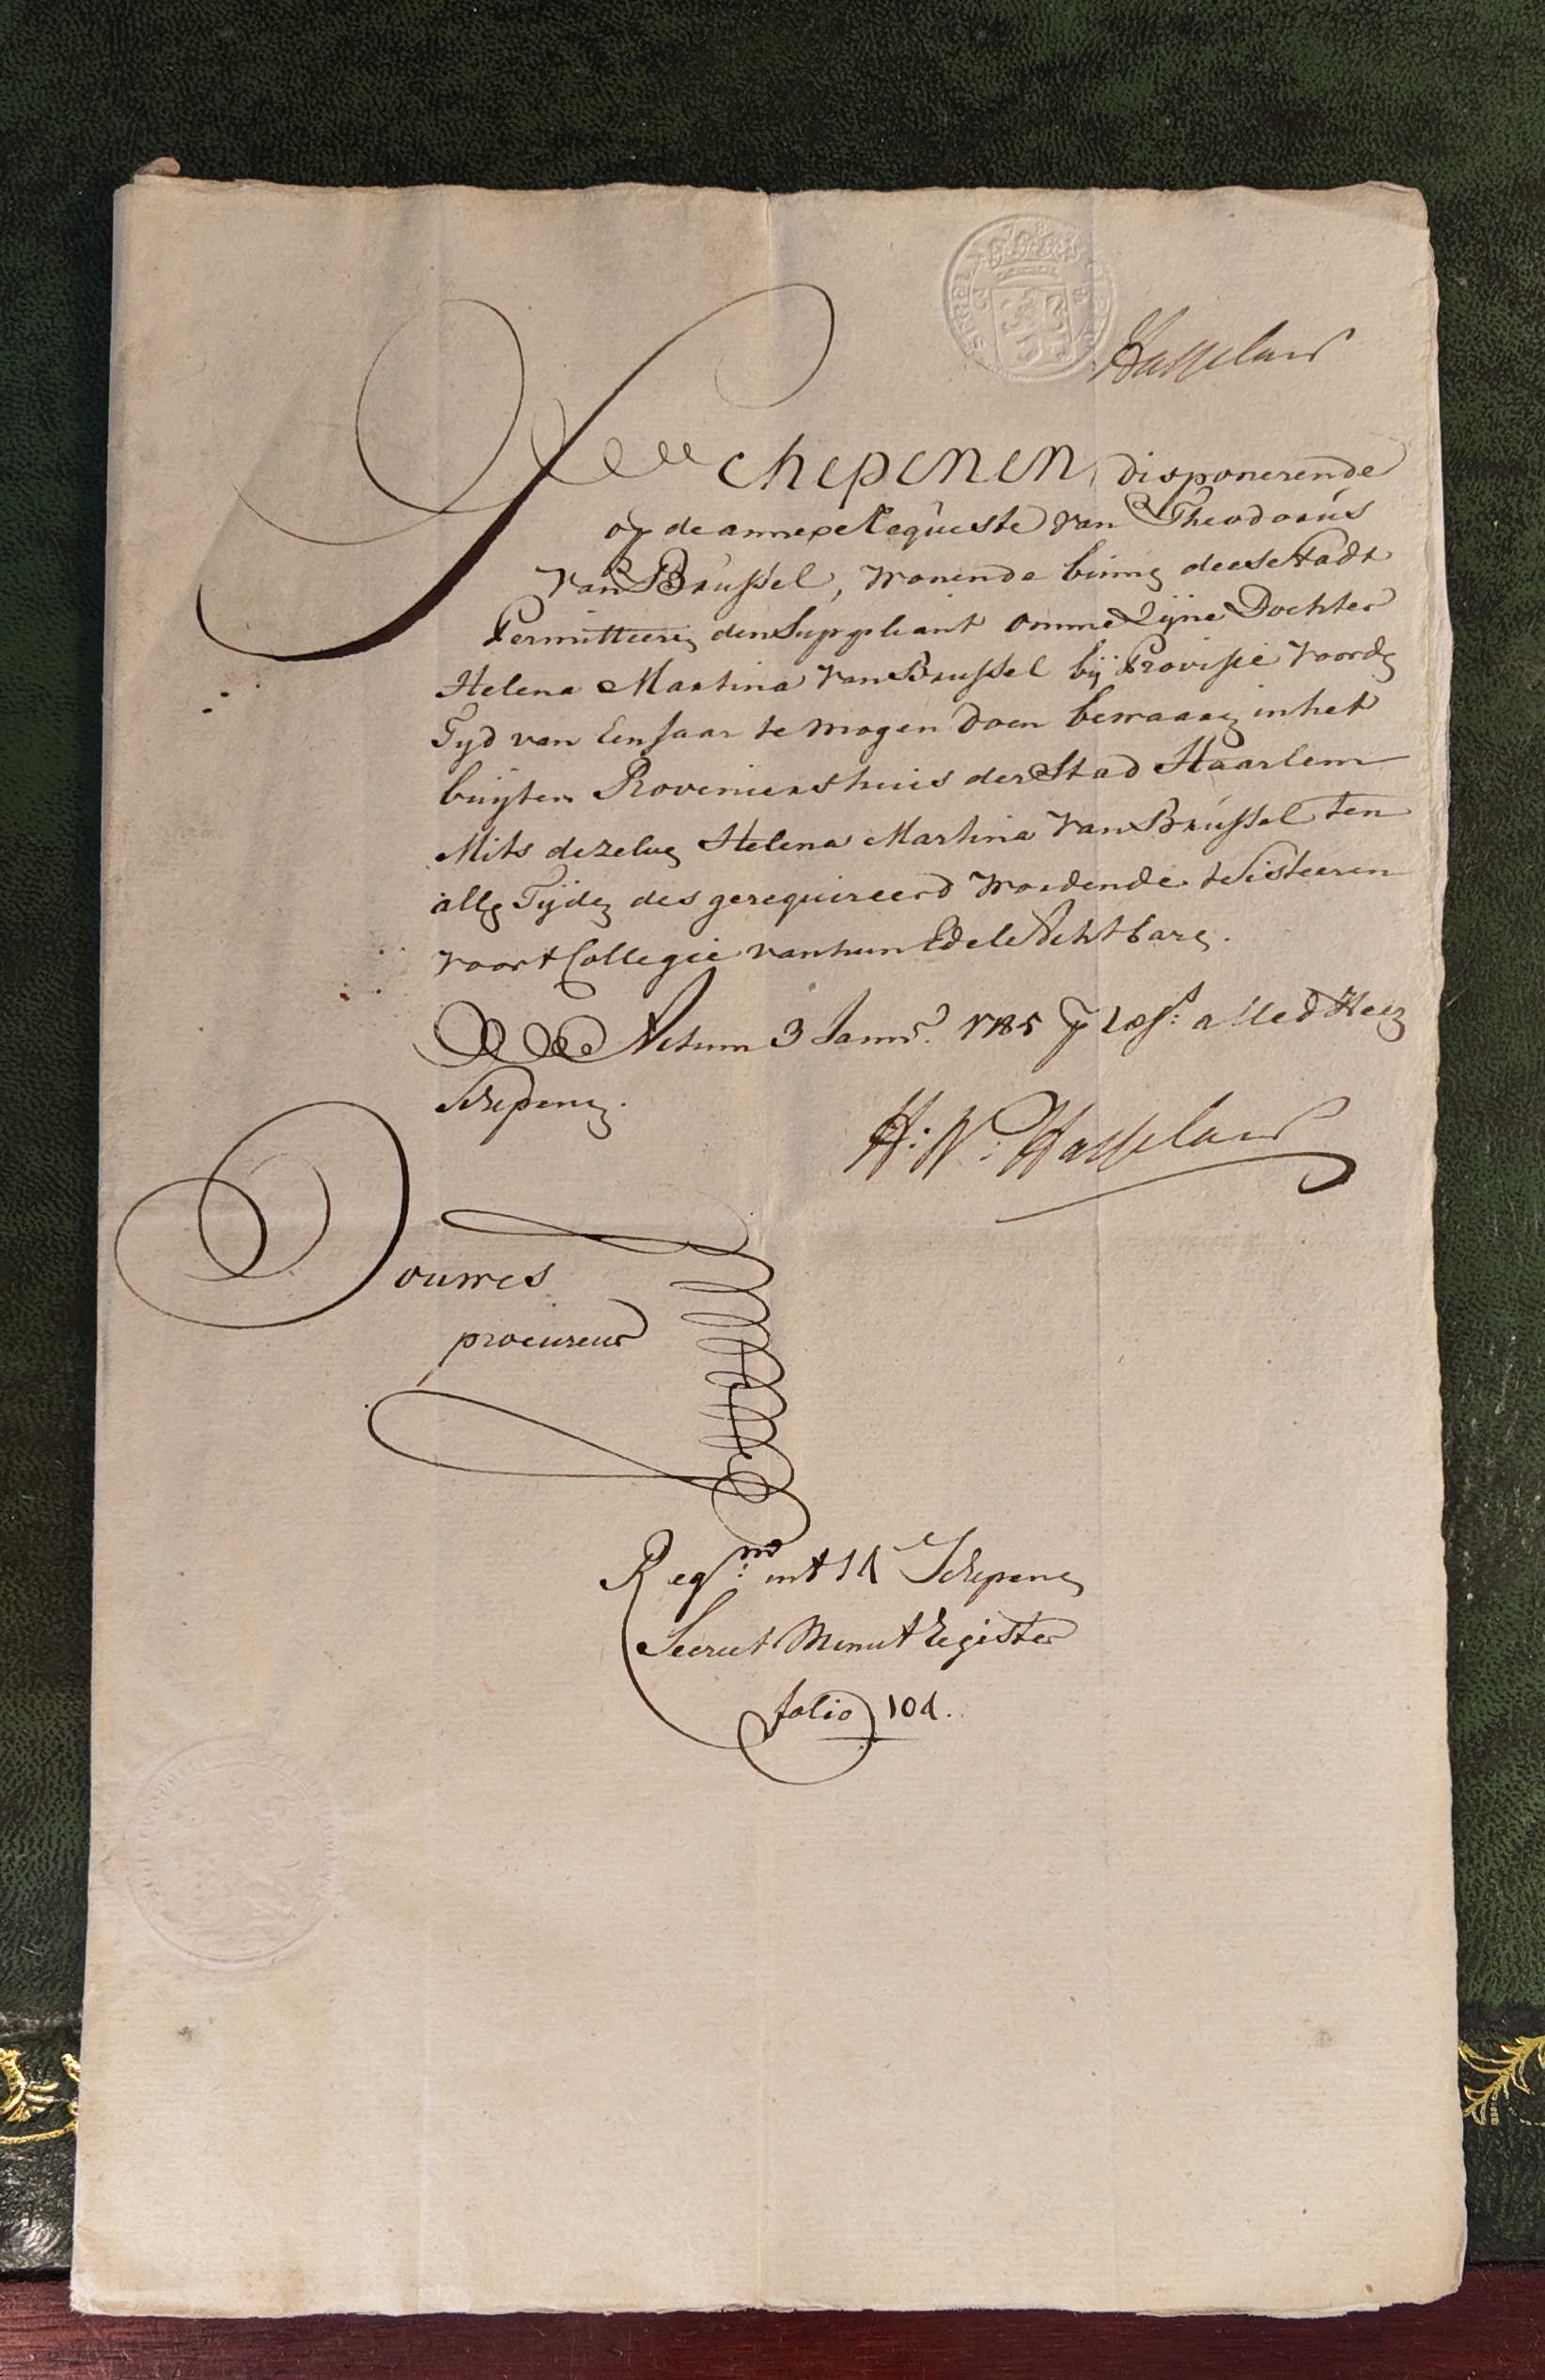 Hasselaer
Schepenen disponerende
op de annexe Requeste van Theodorus
van Brussel, wonende binnen deese Stadt
Permitteeren den Suppliant omme Zijne Dochter
Helena Martina van Brussel bij Provisie voor den
Tyd van Een Jaar te mogen doen bewaaren in het
buyten Proveniershuis der Stad Haarlem
Mits dezelve Helena Martina van Brussel ten
alle Tijden des gerequireerd wordende te Sisteeren
voor t Collegie van hun Edele Achtbare.
Actum 3 Janu. 1785 alle d Heeren
Schepenen.
H: N: Hasselaer
Douwes
procureur
Reg: int 14 Schepenen
Secreet Minut Register
folio 104.